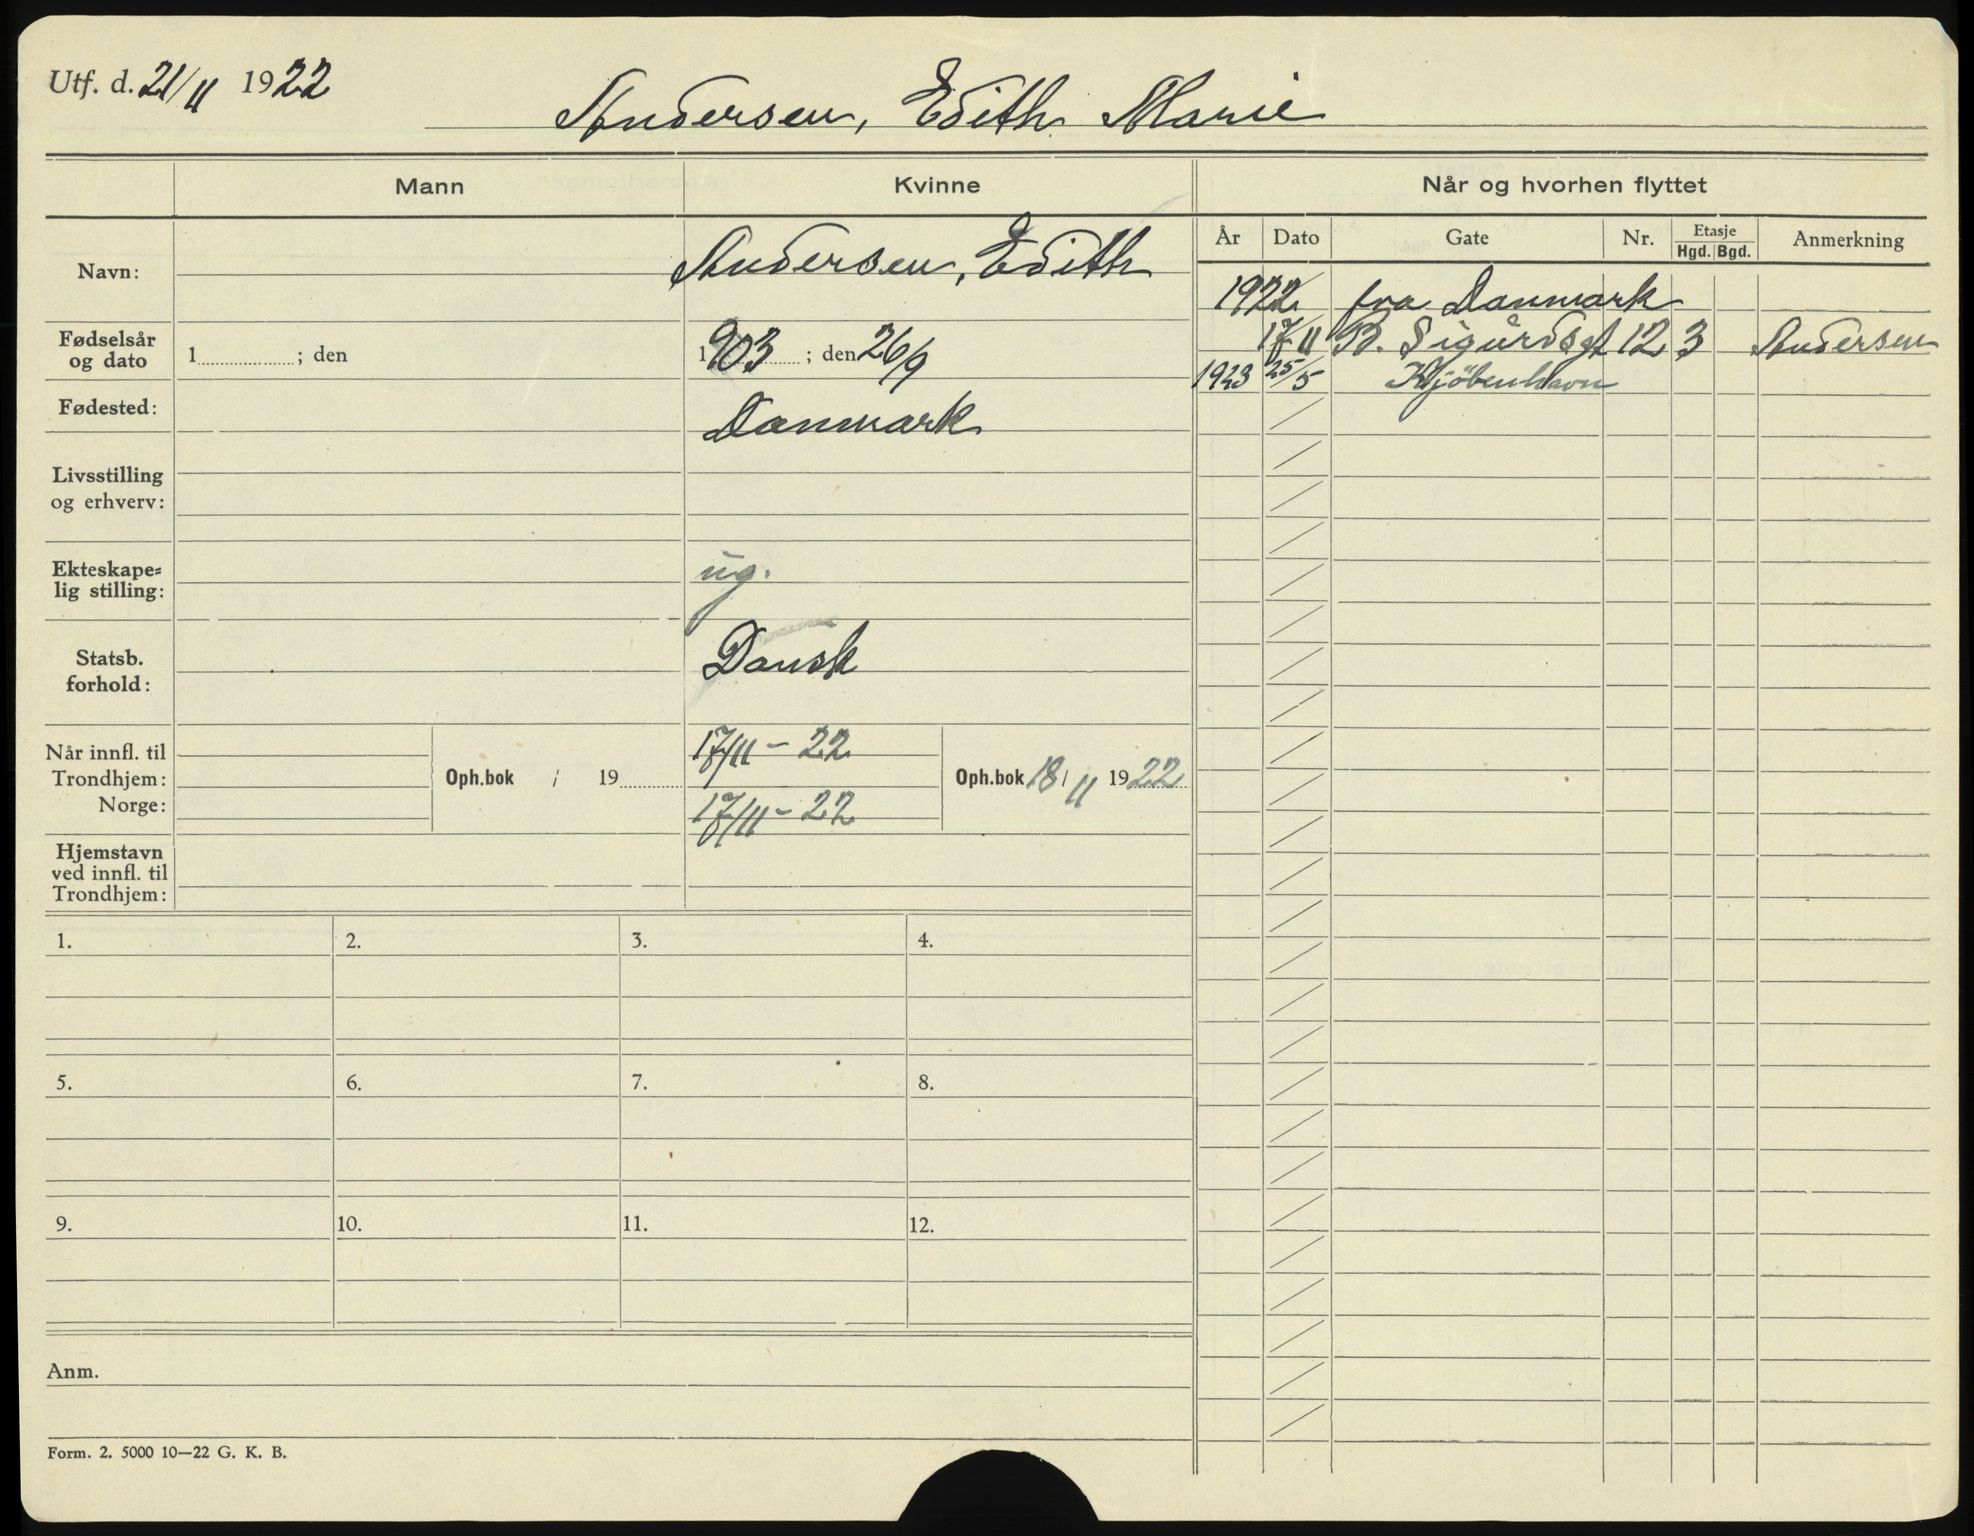 Utf. d. 21/11 1922
Andersen, Edith Marie
Mann Kvinne Når og hvorhen flyttet
År Dato Gate Nr. Etasje Hgd. Bgd. Anmerkning
Navn: Andersen, Edith
1922 fra Danmark
17/11 B. Sigurdsgt 12 3 Andersen
1923 25/5 Kjöbenhavn
Fødselsår
og dato 1 ; den 1903 ; den 26/9
Fødested: Danmark
Livsstilling
og erhverv:
Ekteskape=
lig stilling: ug.
Statsb.
forhold: Dansk
Når innfl. til
Trondhjem: 17/11 - 22
Norge: 17/11 - 22
Oph.bok / 19
Oph.bok 18/11 1922
Hjemstavn
ved innfl. til
Trondhjem:
1. 2. 3. 4.
5. 6. 7. 8.
9. 10. 11. 12.
Anm.
Form. 2. 5000 10—22 G. K. B.